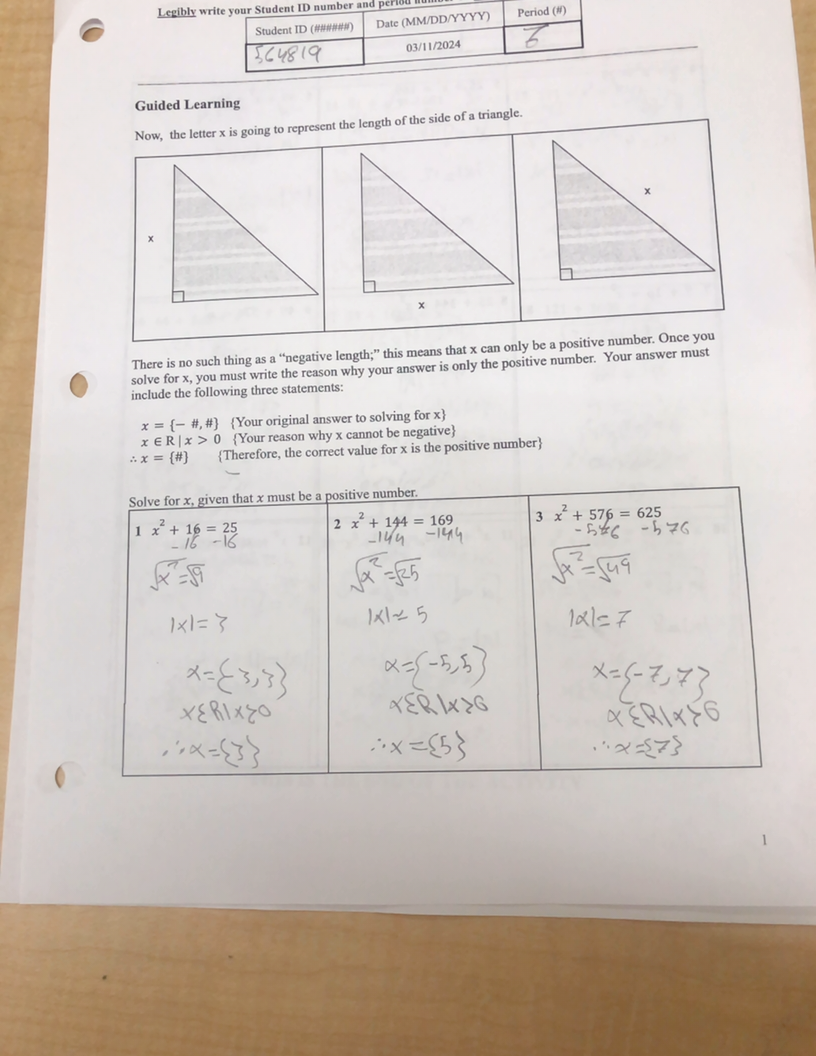 Legibly write your Student ID number and period number
Student ID (######) Date (MM/DD/YYYY) Period (#)
564819 03/11/2024
Guided Learning
Now, the letter x is going to represent the length of the side of a triangle.
x
x
x
There is no such thing as a “negative length;” this means that x can only be a positive number. Once you
solve for x, you must write the reason why your answer is only the positive number. Your answer must
include the following three statements:
x = {− #, #} {Your original answer to solving for x}
x ∈ R | x > 0 {Your reason why x cannot be negative}
∴ x = {#} {Therefore, the correct value for x is the positive number}
Solve for x, given that x must be a positive number.
1 x² + 16 = 25
-16 -16
√x² = √9
|x| = 3
x = {-3, 3}
x ∈ R | x > 0
∴ x = {3}
2 x² + 144 = 169
-144 -144
√x² = √25
|x| = 5
x = {-5, 5}
x ∈ R | x > 0
∴ x = {5}
3 x² + 576 = 625
-576 -576
√x² = √49
|x| = 7
x = {-7, 7}
x ∈ R | x > 0
∴ x = {7}
1